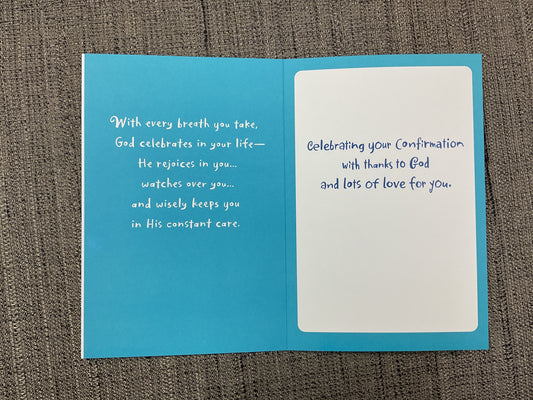 With every breath you take,
God celebrates in your life—
He rejoices in you...
watches over you...
and wisely keeps you
in His constant care.
Celebrating your Confirmation
with thanks to God
and lots of love for you.